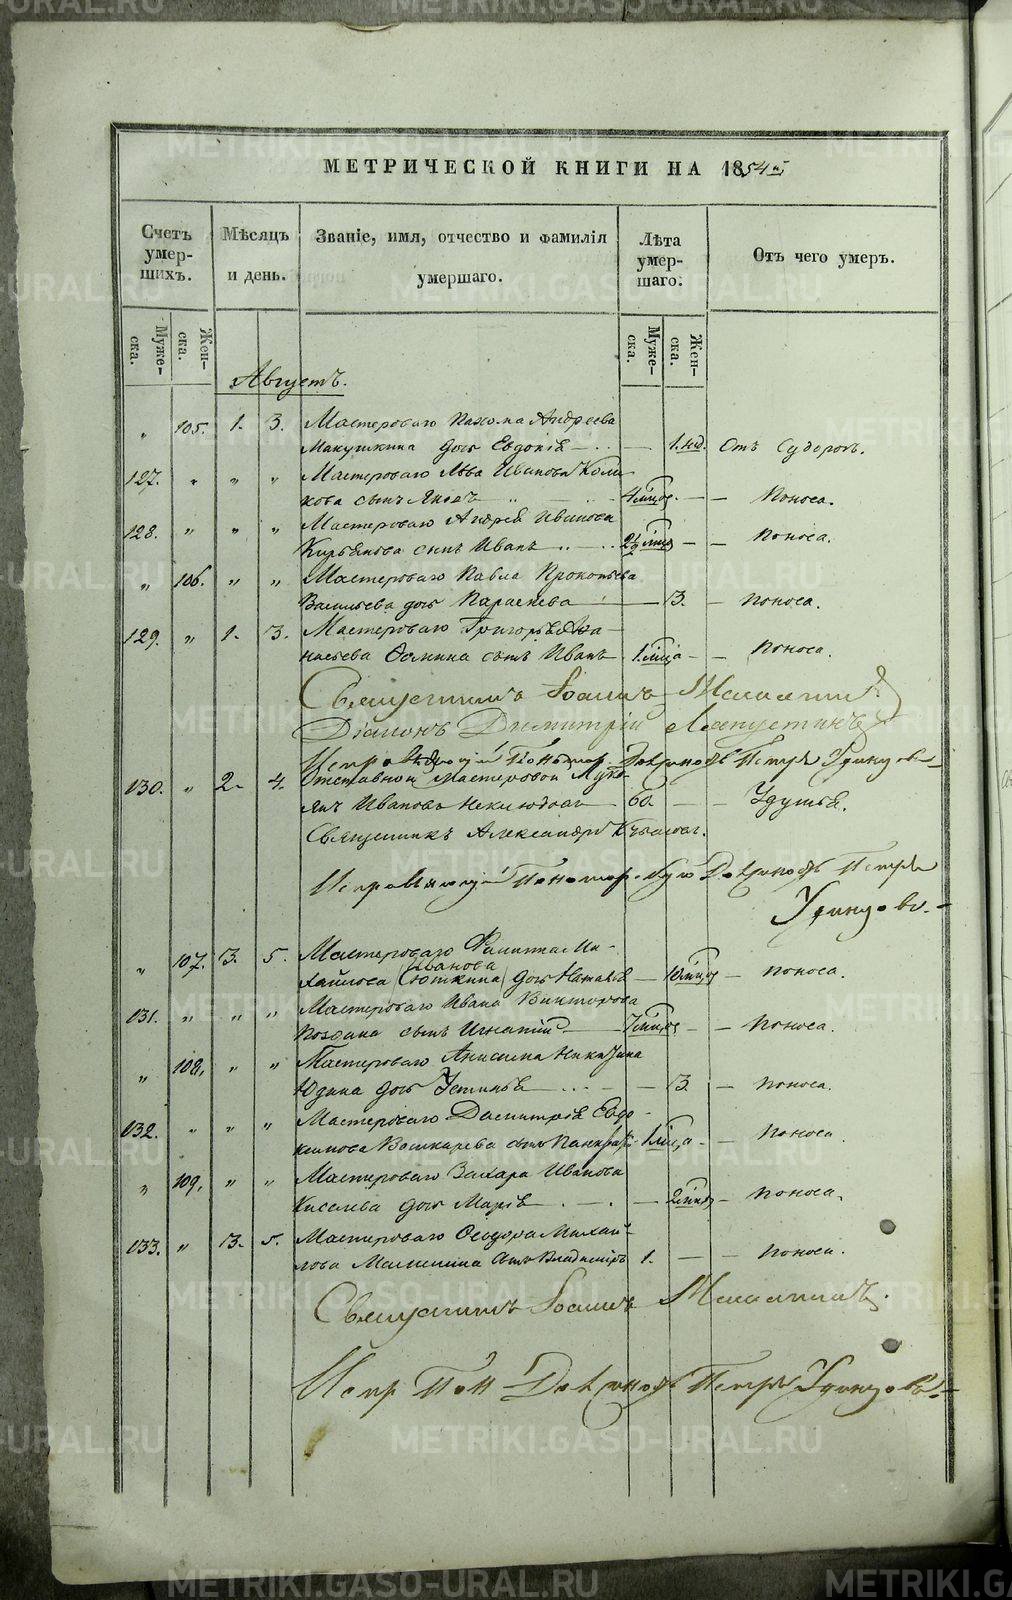 МЕТРИЧЕСКОЙ КНИГИ НА 1854й
Счетъ умер-шихъ.
Мѣсяцъ и день.
Званіе, имя, отчество и фамилія умершаго.
Лѣта умер-шаго.
Отъ чего умеръ.
Муже-ска. Жен-ска. Муже-ска. Жен-ска.
Августъ.
„ 105. 1. 3. Мастероваго Пахома Андреева
Макушкина дочь Евдокія 1. нед. Отъ Судорогъ.
127. „ „ „ Мастероваго Льва Иванова
кова сынъ Яковъ 4 мцов. Поноса.
128. „ „ „ Мастероваго Андрея Иванова
Кирьянова сынъ Иванъ 2½ мцов Поноса.
„ 106. „ „ Мастероваго Павла Прокопьева
Васильева дочь Параскева 3. Поноса.
129. „ 1. 3. Мастероваго Григорья Афа-
насьева Фомина сынъ Иванъ 1. мца Поноса.
Священникъ Іоаннъ
Діаконъ Димитрій Лапустинъ
Петръ Удинцовъ
130. „ 2. 4. Отставной мастеровой Луко-
янъ Ивановъ Неклюдовъ 60. Удушья.
Священникъ Александръ
Исправляющій Пономар. Петръ
Удинцовъ.
„ 107. 3. 5. Мастероваго Филиппа Ми-
Иванова
хайлова (Сюткина) дочь Наталія 10 мцов Поноса.
131. „ „ „ Мастероваго Ивана Викторова
Поздина сынъ Игнатій 7 мцов Поноса.
„ 108. „ „ Мастероваго Анисима Никитина
Юдина дочь Устинья 3. Поноса.
132. „ „ „ Мастероваго Димитрія Евдо-
кимова Вошкарева сынъ Панкратій 1 мца Поноса
„ 109. „ „ Мастероваго Захара Иванова
Киселева дочь Марія 2 мцов Поноса.
133. „ 3. 5. Мастероваго Ѳеодора Михай-
лова Малинина сынъ Владиміръ 1. Поноса.
Священникъ Іоаннъ
Испр Пон Петръ Удинцовъ
METRIKI.GASO-URAL.RU